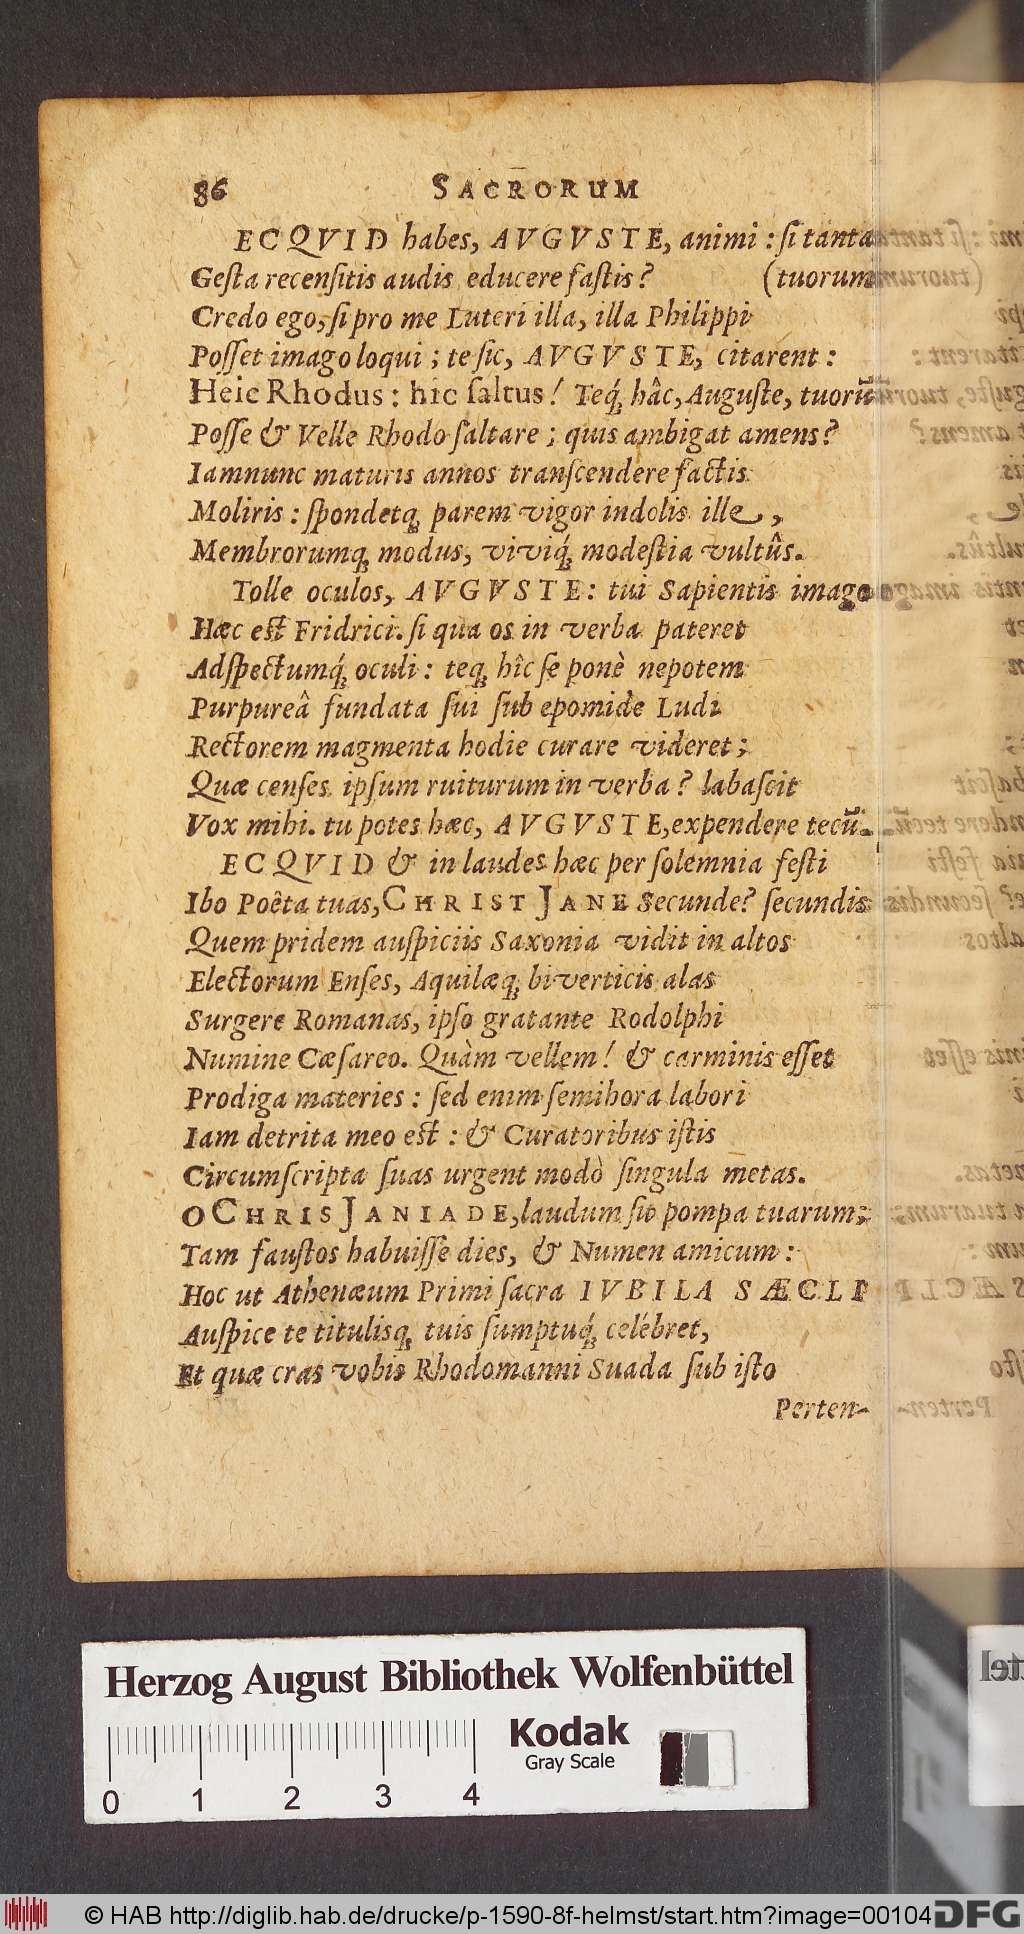 86 SACRORUM
ECQVID habes, AVGVSTE, animi : ſi tanta
Geſta recenſitis audis educere faſtis? (tuorum
Credo ego, ſi pro me Luteri illa, illa Philippi
Poſſet imago loqui ; te ſic, AVGVSTE, citarent :
Heic Rhodus : hic ſaltus! Teq́; hâc, Auguſte, tuorũ
Poſſe & Velle Rhodo ſaltare ; quis ambigat amens?
Iamnunc maturis annos tranſcendere factis
Moliris : ſpondetq; parem vigor indolis ille,
Membrorumq; modus, viviq́; modeſtia vultûs.
Tolle oculos, AVGVSTE : tui Sapientis imago
Hæc eſt Fridrici. ſi qua os in verba pateret
Adſpectumq́; oculi : teq; hîc ſe ponè nepotem
Purpureâ fundata ſui ſub epomide Ludi
Rectorem magmenta hodie curare videret ;
Quæ cenſes ipſum ruiturum in verba? labaſcit
Vox mihi. tu potes hæc, AVGVSTE, expendere tecũ.
ECQVID & in laudes hæc per ſolemnia feſti
Ibo Poêta tuas, CHRIST JANE Secunde? ſecundis
Quem pridem auſpiciis Saxonia vidit in altos
Electorum Enſes, Aquilæq; biverticis alas
Surgere Romanas, ipſo gratante Rodolphi
Numine Cæſareo. Quàm vellem! & carminis eſſet
Prodiga materies : ſed enim ſemihora labori
Iam detrita meo eſt : & Curatoribus iſtis
Circumſcripta ſuas urgent modò ſingula metas.
O CHRISJANIADE, laudum ſic pompa tuarum ;
Tam fauſtos habuiſſe dies, & Numen amicum :
Hoc ut Athenæum Primi ſacra IVBILA SÆCLI
Auſpice te titulisq; tuis ſumptuq́; celebret,
Et quæ cras vobis Rhodomanni Suada ſub iſto
Perten-
Herzog August Bibliothek Wolfenbüttel
Kodak
Gray Scale
0 1 2 3 4
© HAB http://diglib.hab.de/drucke/p-1590-8f-helmst/start.htm?image=00104
DFG